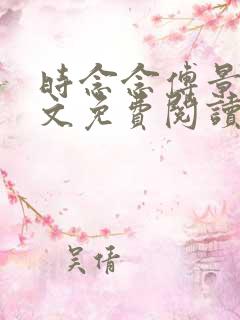 時念念傅景
文免費閱讀
吴倩